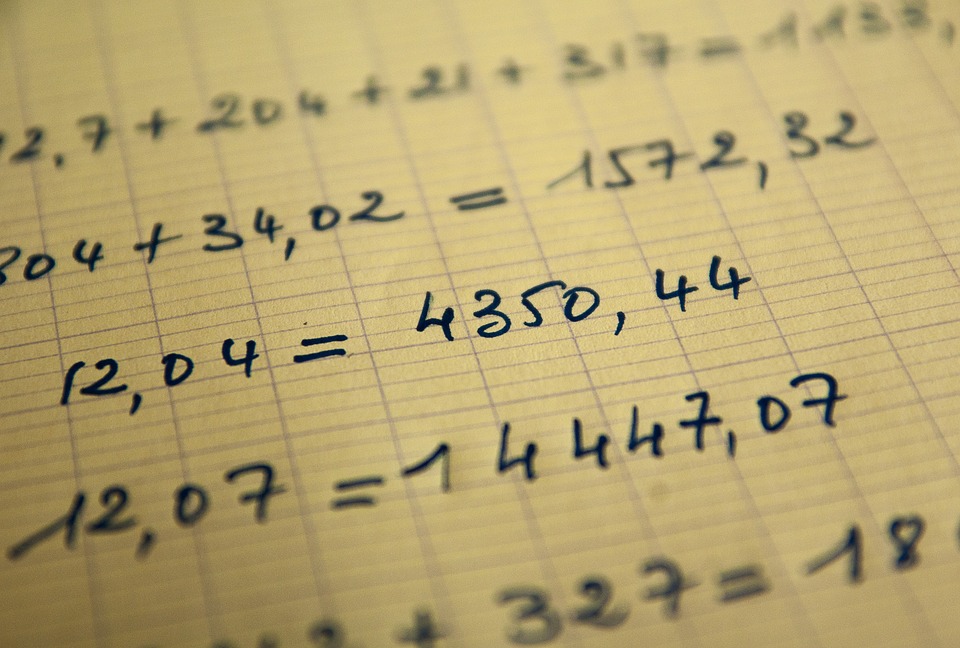 12,7 + 204 + 21 + 317 = 1133,
304 + 34,02 = 1572,32
12,04 = 4350,44
12,07 = 14447,07
+ 327 = 18